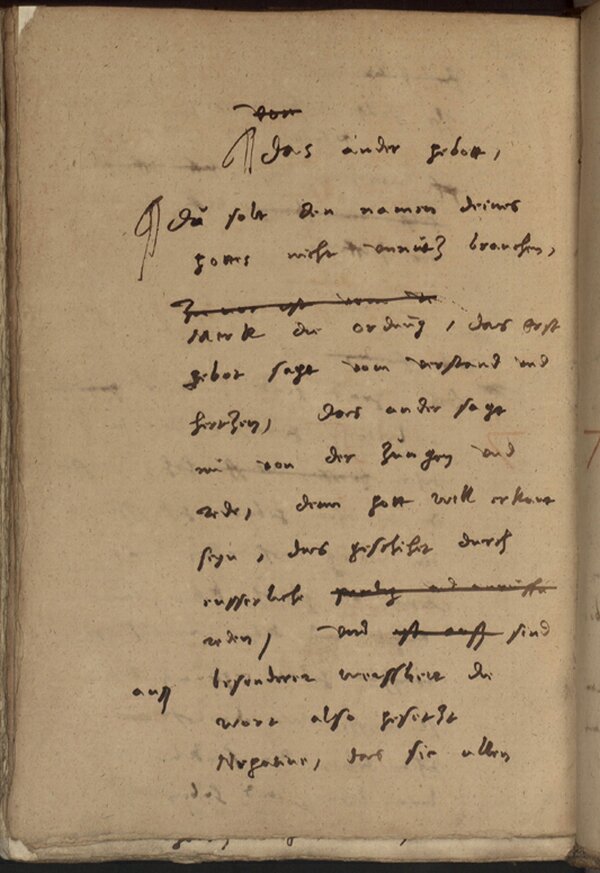 Von
Das ander gebott,
Du solt den namen deines
gottes nicht unnutz brauchen,
Merk die ordnug, das erst
gebot sagt vom verstand und
hertzen, das ander sagt
nu von der zungen und
rede, denn gott will erkant
seyn, das geschihet durch
eusserliche
reden, und ist auff sind
auss besonderer weyssheit die
wort also gesetzt
Negative, das sie allen